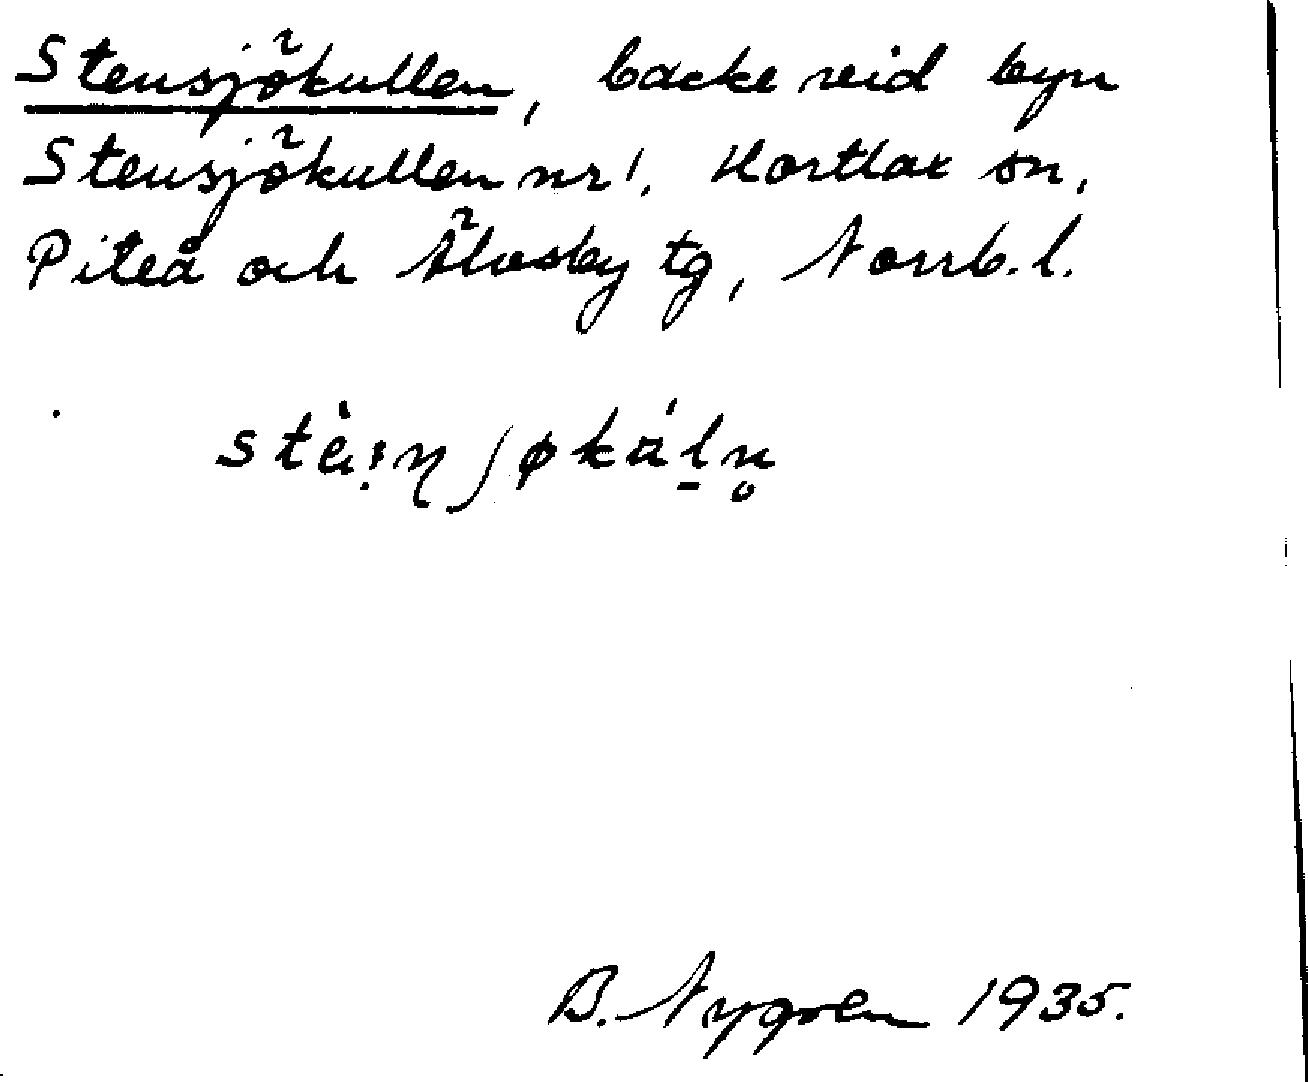 Stensjökullen, backe vid byn
Stensjökullen nr 1. Hortlax sn,
Piteå och Älvsby tg, Norrb. l.
B. Nygren 1935.